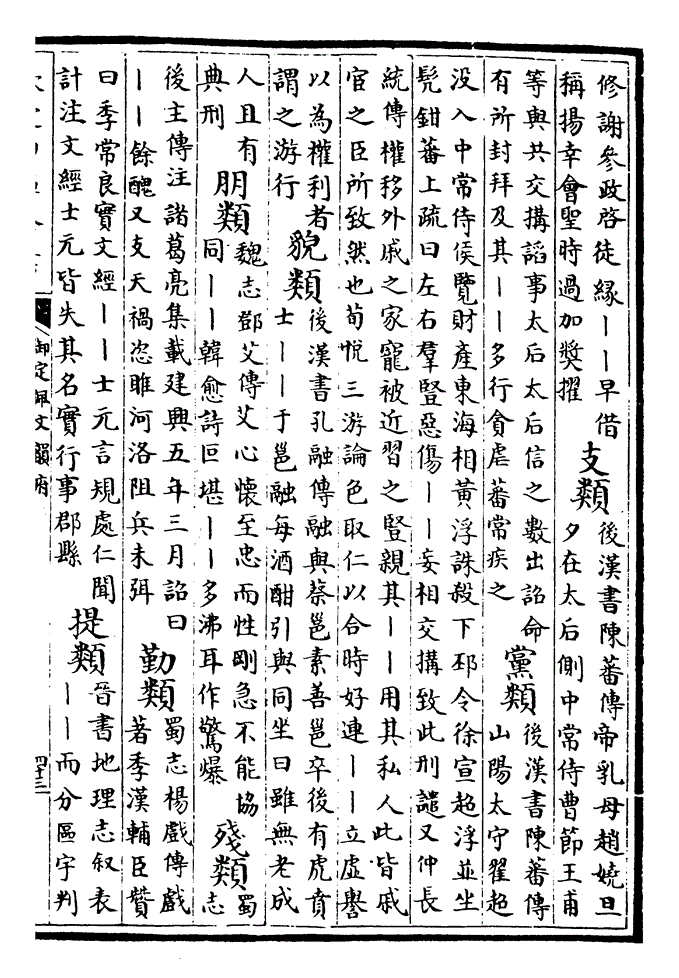 修謝參政啓徒緣——早借
稱揚幸會聖時過加奬擢
支類
後漢書陳蕃傳帝乳母趙嬈旦
夕在太后側中常侍曹節王甫
等與共交搆謟事太后太后信之數出詔命
有所封拜及其——多行貪虐蕃常疾之
黨類
後漢書陳蕃傳
山陽太守翟超
没入中常侍侯覽財產東海相黄浮誅殺下邳令徐宣超浮並坐
髠鉗蕃上疏曰左右羣豎惡傷——妄相交搆致此刑譴又仲長
統傳權移外戚之家寵被近習之豎親其——用其私人此皆戚
官之臣所致然也荀悅三游論色取仁以合時好連——立虚譽
以為權利者
謂之游行
貌類
後漢書孔融傳融與蔡邕素善邕卒後有虎賁
士——于邕融每酒酣引與同坐曰雖無老成
人且有
典刑
朋類
魏志鄧艾傳艾心懷至忠而性剛急不能協
同——韓愈詩叵堪——多沸耳作驚爆
殘類
蜀
志
後主傳注諸葛亮集載建興五年三月詔曰
——餘醜又支天禍恣睢河洛阻兵未弭
勤類
蜀志楊戲傳戲
著季漢輔臣贊
曰季常良實文經——士元言規處仁聞
計注文經士元皆失其名實行事郡縣
提類
晉書地理志叙表
——而分區宇判
御定佩文韻府
四十三